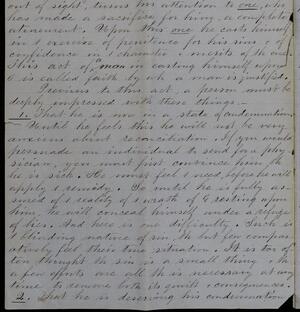 out of sight, turns his attention to one, who
has made a sacrifice for him, a complete
atonement. Upon this one he casts himself
in t exercise of penitence for his sins & of
confidence in t character & merits of the one.
This act of, man in casting himself upon
is called faith by wh a man is justified.
Previous to this act, a person must be
deeply impressed with these things. —
1. That he is now in a state of condemnation.
Until he feels this he will not be very
anxious about reconciliation. If you would
persuade an individual to send for a phy
sician, you must first convince him, th
he is sick. He must feel t need, before he will
apply t remedy. So until he is fully as-
sured of t reality of t wrath of G resting upon
him, he will conceal himself under a refuge
of lies. And here is one difficulty. Such is
t blinding nature of sin, th but few compar
atively feel their true situation. It is too of
ten thought th sin is a small thing & th a
a few efforts are all th is necessary at any
time to remove both its guilt & consequences.
2. That he is deserving his condemnation